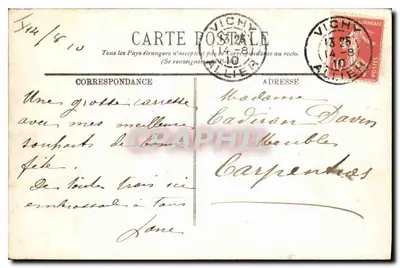 14/8 10
CARTE POSTALE
Tous les Pays étrangers n'acceptent pas la Correspondance au recto.
(Se renseigner
VICHY
13 25
14-8
10
ALLIER
VICHY
13 25
14-8
10
ALLIER
POSTES
CORRESPONDANCE
ADRESSE
Une grosse caresse
avec mes meilleurs
souhaits de bonne
fête.
De toutes trois ici
embrassade à tous
Madame
Davin
Meubles
Carpentras